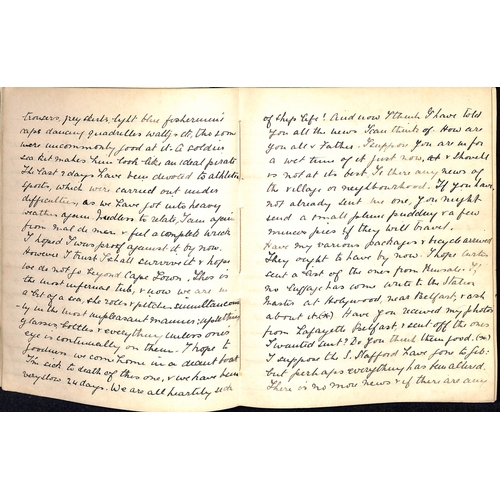 trousers, grey shirts, light blue fishermen's
caps dancing quadrilles waltz & c, tho some
were uncommonly good at it. A soldiers
sea kit makes him look like an ideal pirate.
The last 2 days have been devoted to athletic
sports, which were carried out under
difficulties, as we have got into heavy
weather again. Needless to relate, I am again
from mal de mer & feel a complete wreck
I hoped I was proof against it by now.
However I trust I shall survive it & hope
we do not go beyond Cape Town. This is
the most infernal tub, & now we are in
a bit of a sea, she rolls & pitches simultaneous
-ly in the most unpleasant manner; upsetting
glasses, bottles & everything unless one's
eye is continually on them. I hope to
goodness we come home in a decent boat
I'm sick to death of this one, & we have been
very slow 24 days. We are all heartily sick
of ships life! And now I think I have told
you all the news I can think of. How are
you all & Father. I suppose you are in for
a wet time of it just now, &
is not at its best. Is there any news of
the village or neighbourhood. If you have
not already sent me one, you might
send a small plum pudding & a few
mince pies if they will travel.
Have my various packages & bicycle arrived
They ought to have by now. I hope
sent a list of the ones from If
no luggage has come write to the Station
Master at Holywood, near Belfast, & ask
about it. Have you received my photos
from Lafayette Belfast, & sent off the ones
I wanted sent? Do you think them good.
I suppose the S. Stafford have gone to
but perhaps everything has been altered.
There is no more news & if there are any